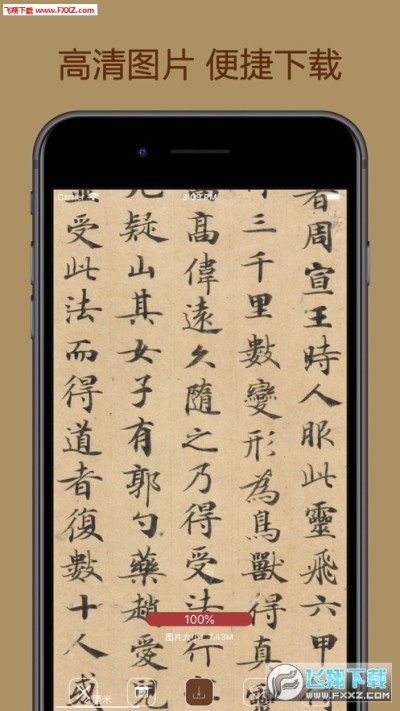 飞翔下载 www.FXXZ.com
高清图片 便捷下载
3:09 PM
者周宣王時人服此靈飛六甲得
三千里數變形為鳥獸得真
高偉遠久隨之乃得受法行
疑山其女子有郭勺藥趙愛兒
受此法而得道者復數十人或
100%
图片大小: 7.43M
厘米
飞翔下载
WWW.FXXZ.COM